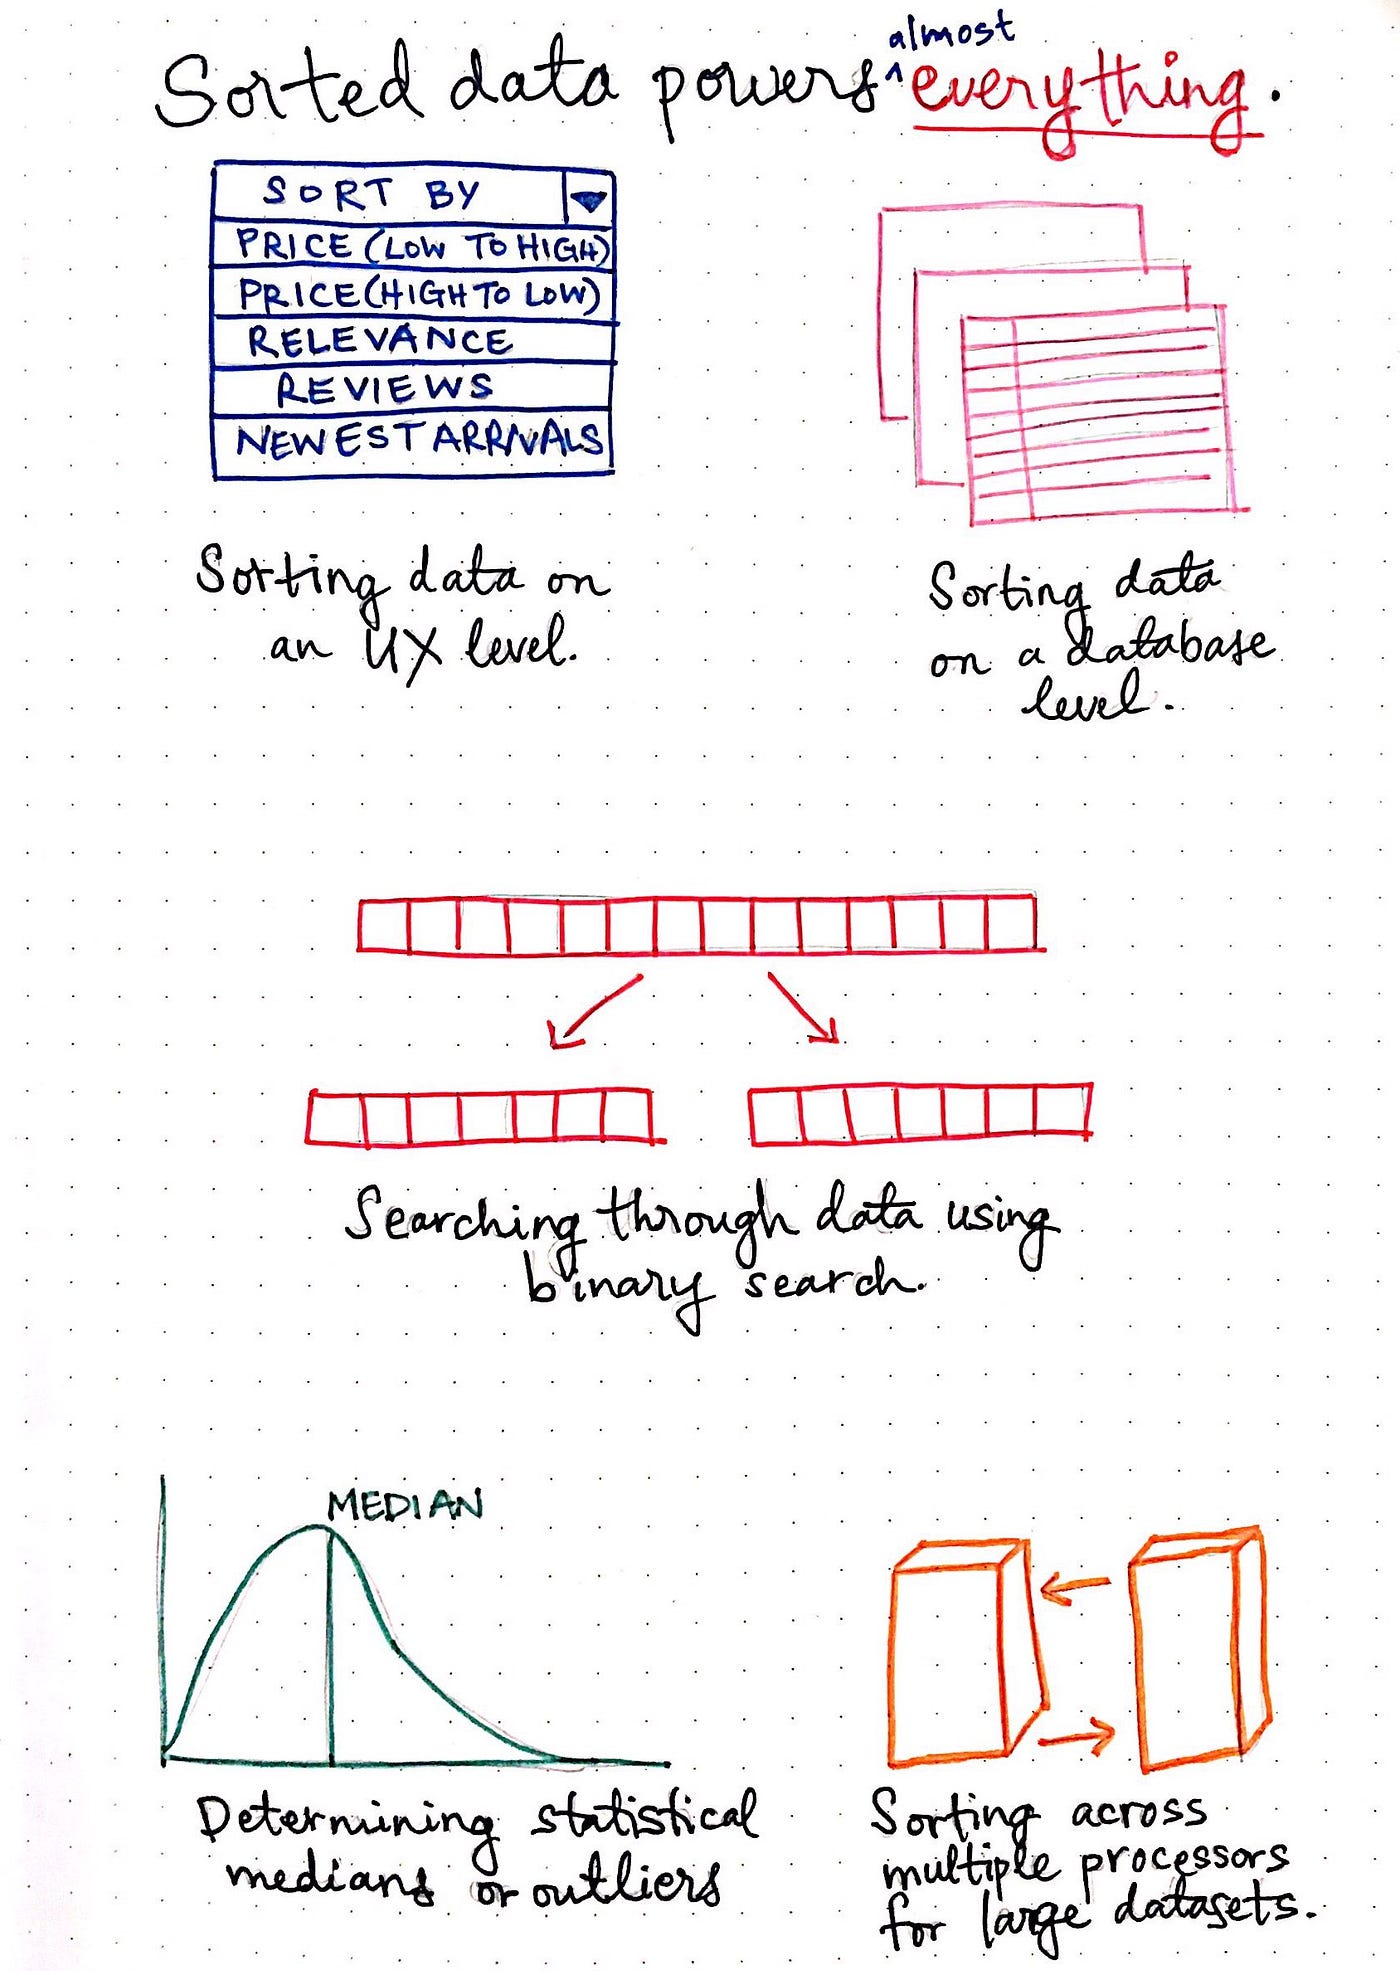 almost
Sorted data powers ^ everything.
SORT BY
PRICE (LOW TO HIGH)
PRICE (HIGH TO LOW)
RELEVANCE
REVIEWS
NEWEST ARRIVALS
Sorting data on
an UX level.
Sorting data
on a database
level.
Searching through data using
binary search.
MEDIAN
Determining statistical
medians or outliers
Sorting across
multiple processors
for large datasets.